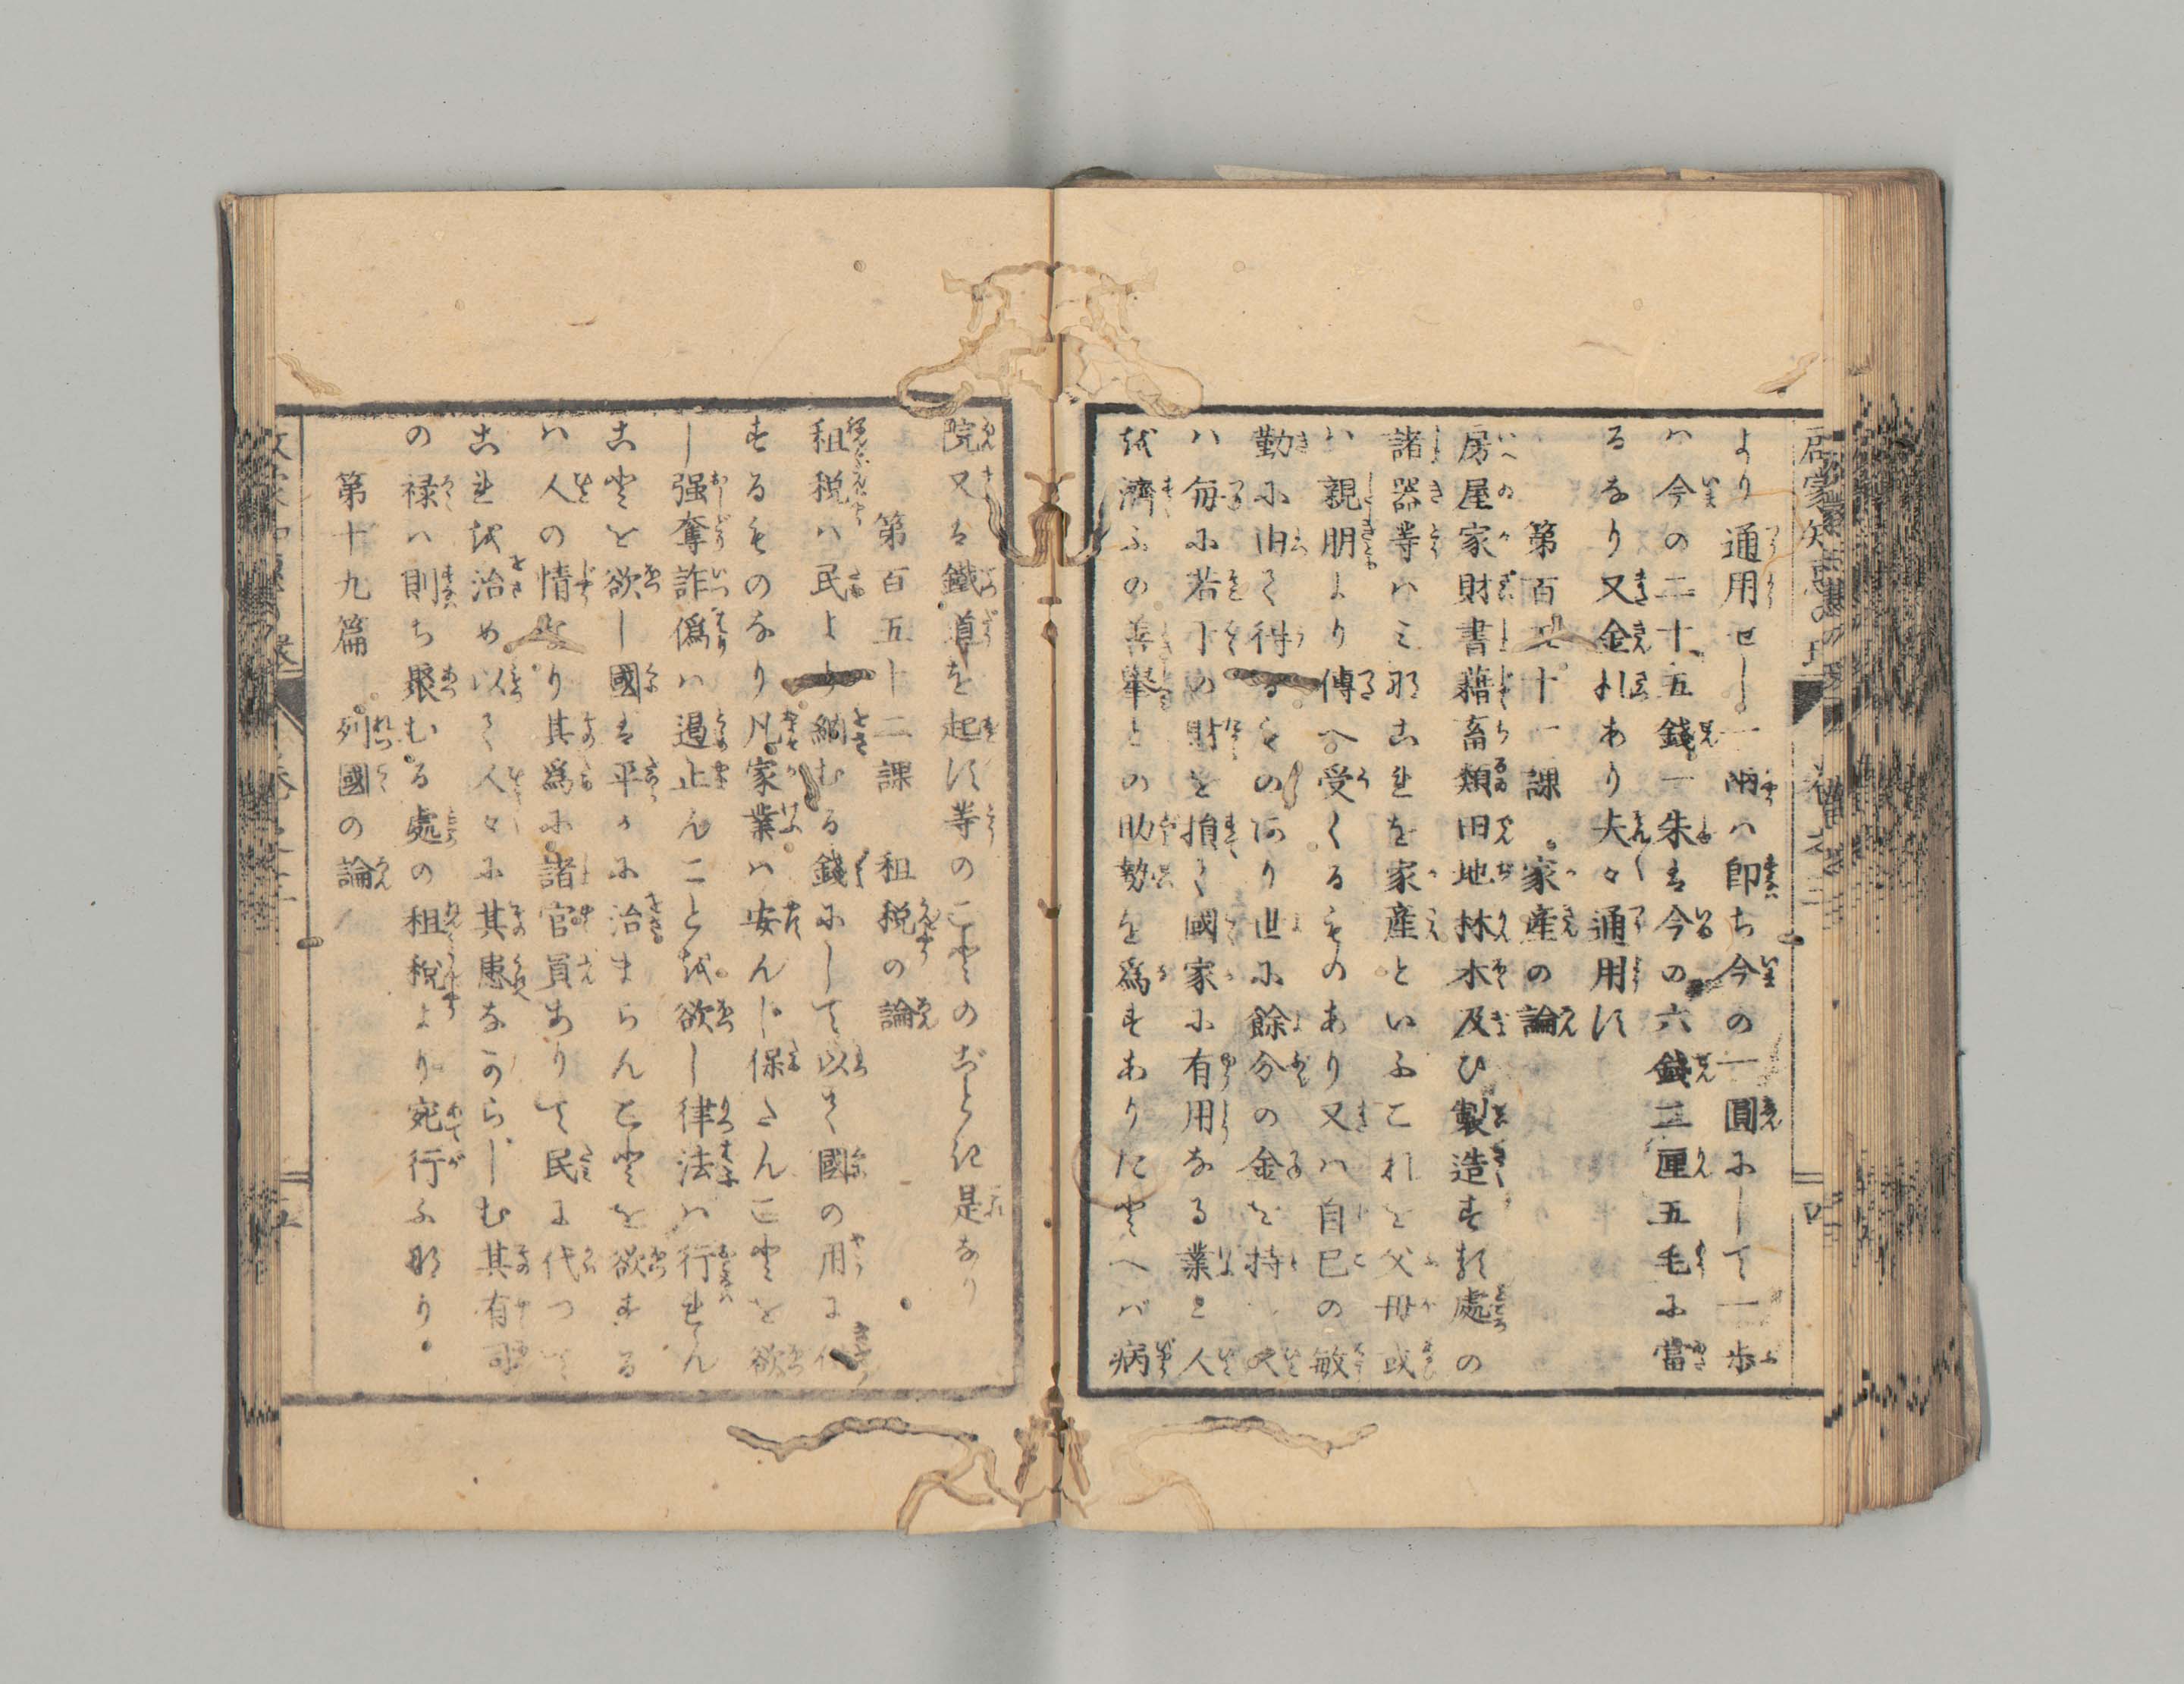 より通用せし一兩ハ即ち今の一圓にして一歩
ハ今の二十五錢一朱は今の六錢二厘五毛に當
るなり又金札あり夫々通用す
第百五十一課 家産の論
房屋家財書籍畜類田地林木及ひ製造する處の
諸器等ハミなこれを家産といふこれを父母或
ハ親朋より傳へ受くるものあり又ハ自己の敏
勤に由て得るものあり世に餘分の金を持人
ハ毎に若干の財を捐て國家に有用なる業と人
を濟ふの善擧との助勢を爲すありたとへバ病
院又は鐵道を起す等のことのごとき是なり
第百五十二課 租税の論
租税ハ民より納むる錢にして以て國の用に
するものなり凡家業ハ安んじ保たんことを欲
し强奪詐僞ハ遏止んことを欲し律法ハ行れん
ことを欲し國は平かに治まらんことを欲する
ハ人の情なり其爲に諸官員ありて民に代つて
これを治め以て人々に其患なからしむ其有司
の禄ハ則ち聚むる處の租税より宛行ふなり
第十九篇 列國の論